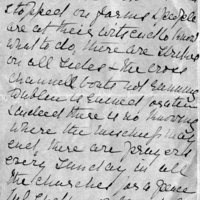 stopped on farms. People
are at their wits end to know
what to do, there are strikes
on all sides & the cross
channell boats not running
Dublin is ruined
indeed there is no knowing
where the mischief may
end, there are prayers
every Sunday in all
the churches for a peace